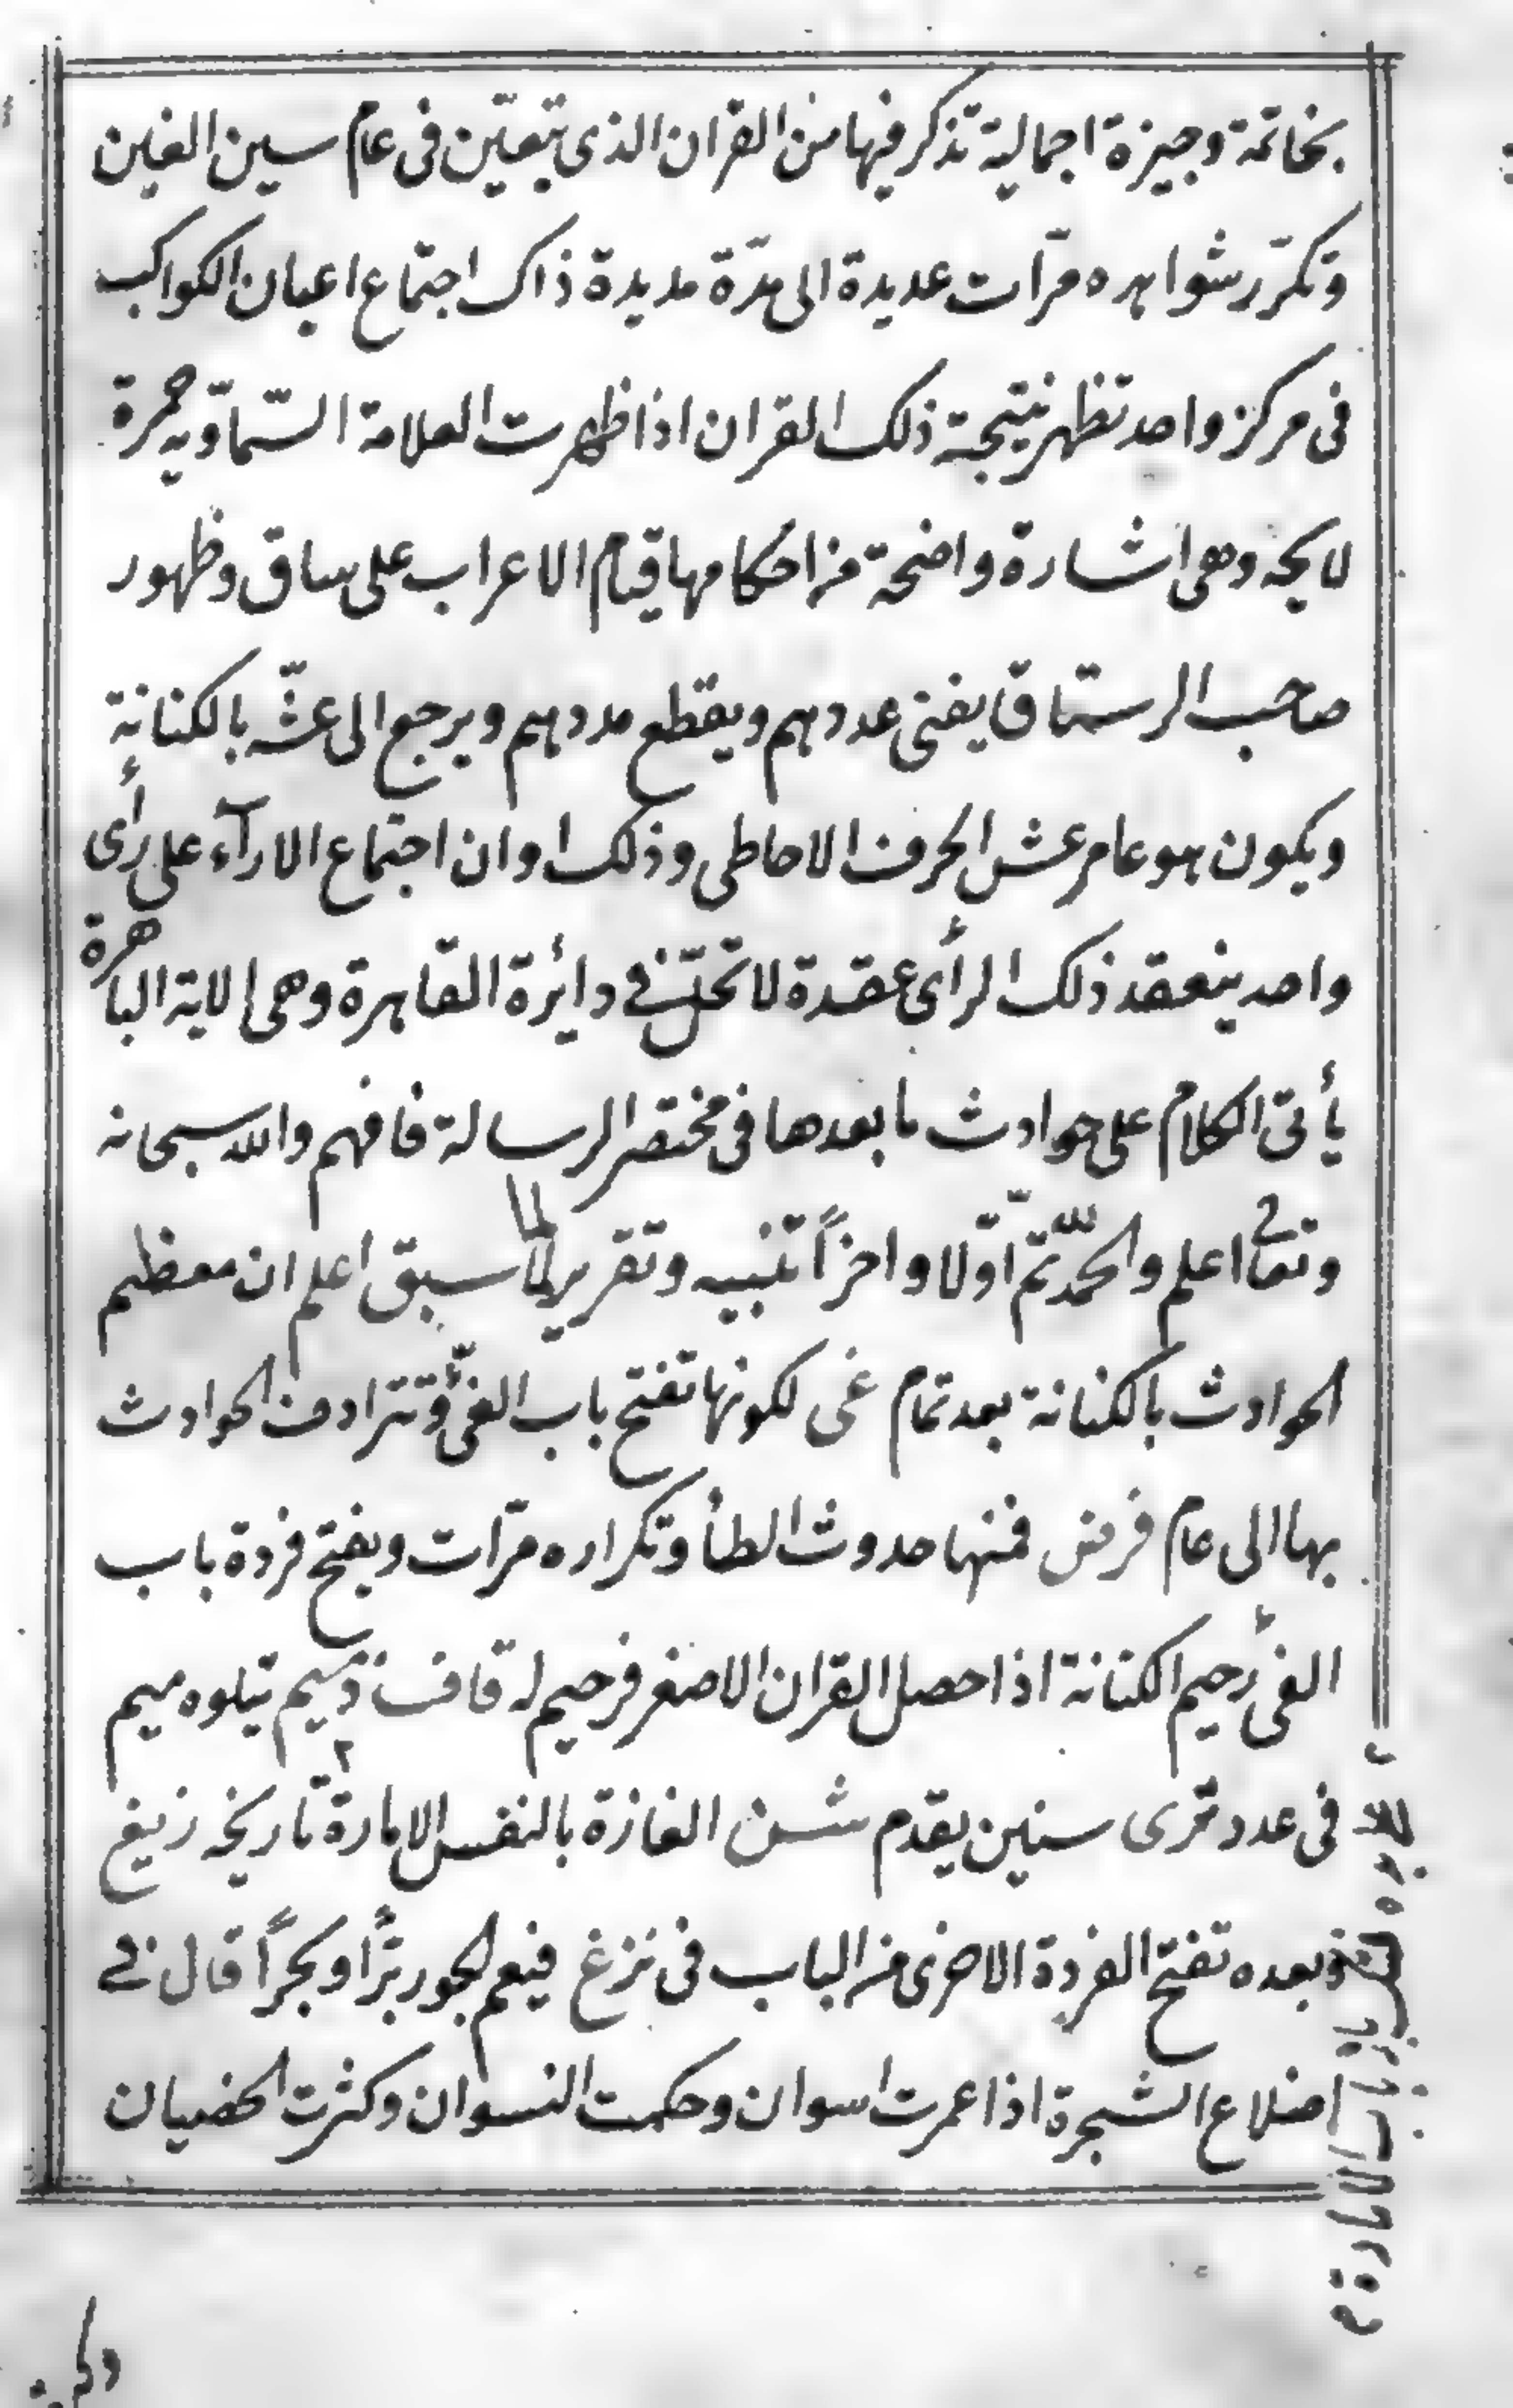 بخاتمة وجيزة اجمالية تذكر فيها من القران الذى يتعيّن فى عام سين الغين
وتكرّر شواهده مرّات عديدة الى مدّة مديدة ذاك اجتماع اعيان الكواكب
فى مركز واحد تظهر نتيجة ذلك القران اذا ظهرت العلامة السّماوّيه حمرة
لايحه وهى اشارة واضحة من احكامها قيام الاعراب على ساق وظهور
صاحب الرستاق يفنى عددهم ويقطع مددهم ويرجع الى عشّه بالكنانة
ويكون هو عامر عش الحرف الاحاطى وذلك اوان اجتماع الارآء على رأى
واحد ينعقد ذلك الرأى عقدة لا تحلّ فى دائرة القاهرة وهى الاية الباهرة
يأتى الكلام على حوادث ما بعدها فى مختصر الرسالة فافهم والله سبحانه
وتعا اعلم والحمد لله ثمّ اوّلا واخراً تنبيه وتقرير لما سبق اعلم ان معظم
الحوادث بالكنانة بعد تمام غى لكونها تفتح باب الغىّ وتترادف الحوادث
بها الى عام فرض فمنها حدوث الطأ وتكراره مرّات ويفتح فردة باب
الغى رحيم الكنانة اذا حصل القران الاصغر فرحيم له قاف وميم يتلوه ميم
فى عدد قرى سنين يقدم شن الغازة بالنفس الامارة تاريخه زنيغ
وبعده تفتح الفردة الاخرى من الباب فى نزغ فيعم الجور برّاً وبحراً قال فى
اضلاع الشجرة اذا عمرت اسوان وحكمت النسوان وكثرت الخصيان